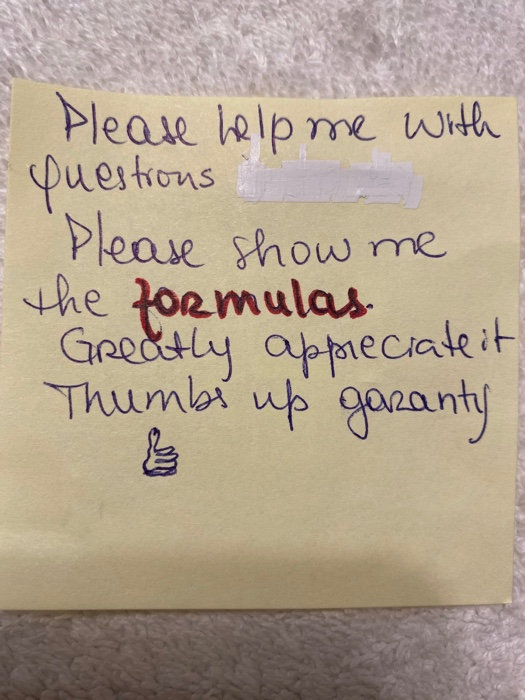 Please help me with
questions
Please show me
the formulas.
Greatly appreciate it
Thumbs up garanty